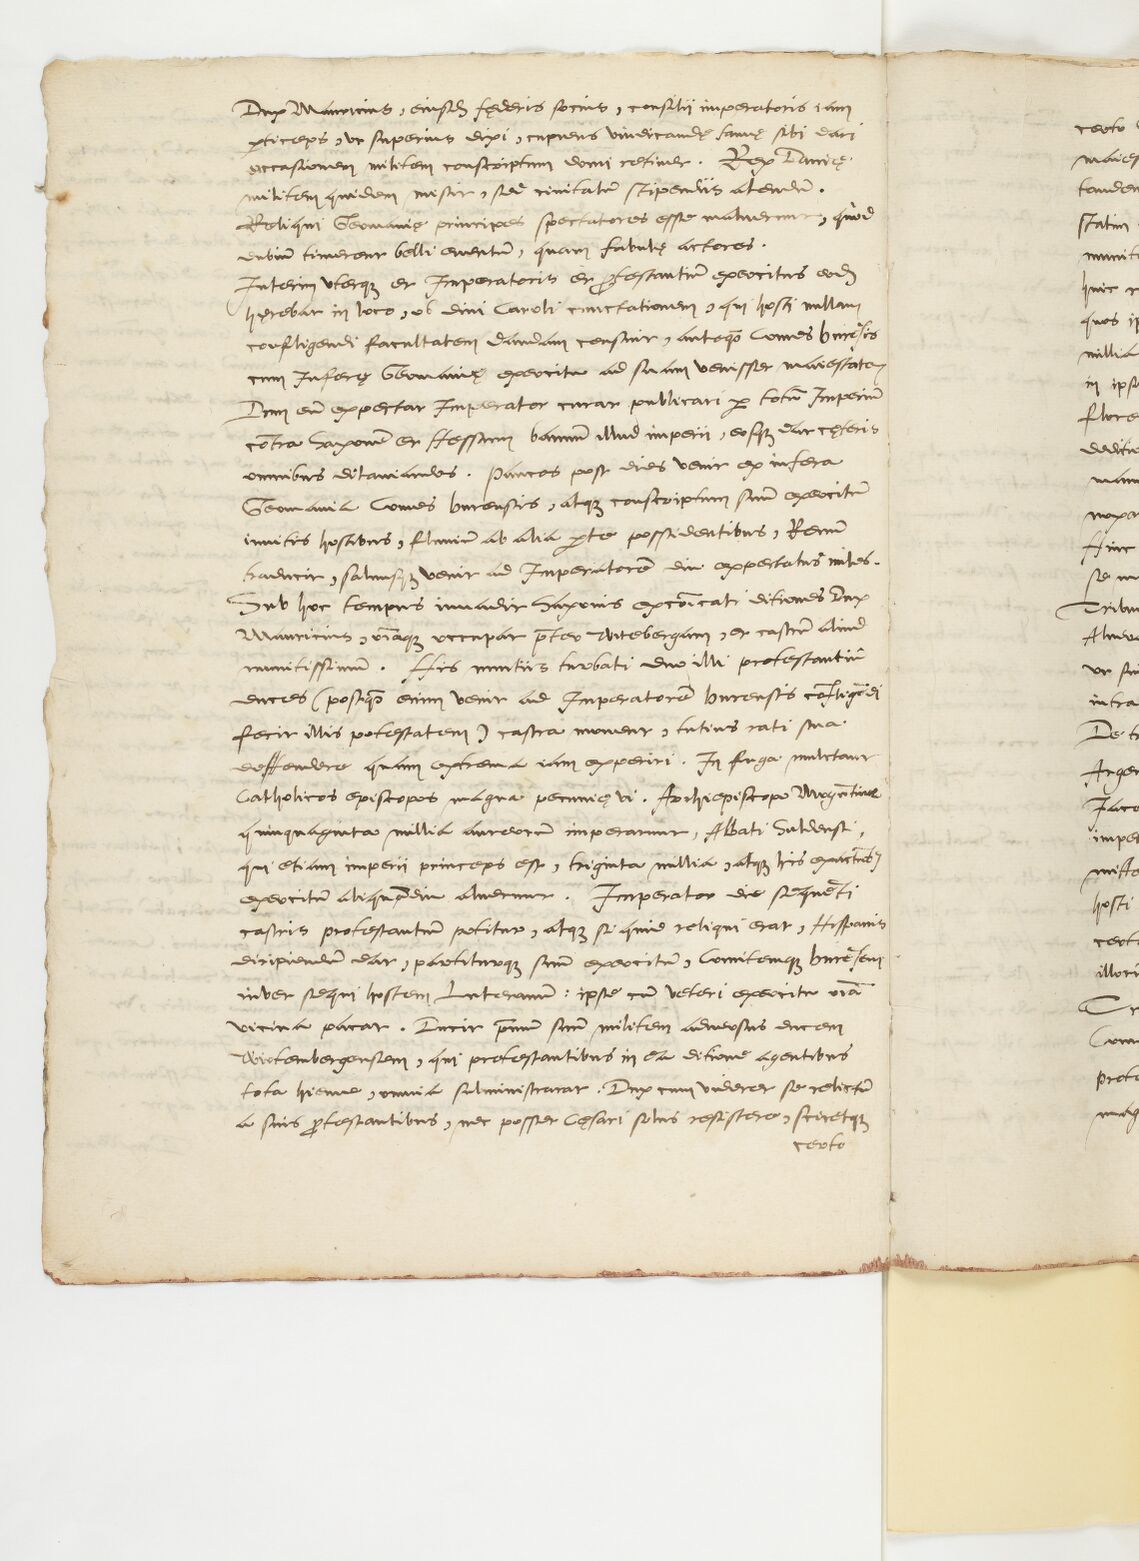 Dux Mauricius, eiusdē fęderis socius, consilii imperatoris iam
particeps, ut superius dixi, cupiens vindicandę famę sibi dari
occasionem militem conscriptum domi retinet. Rex Danię
militem quidem misit, sed civitatū stipendiis alendū.
Reliqui Germanię principes spectatores esse maluerunt, quòd
dubium timerent belli eventū, quam fabulę actores.
Interim uterque et Imperatoris et protestantiū exercitus eodē
hęrebat in loco, ob divi Caroli cunctationem, qui hosti nullam
confligendi facultatem dandam censuit, antequā Comes burēsis
cum Inferę Germanię exercitu ad suam venisset maiestatem
Dum eū expectat Imperator curat publicari per totū Imperiū
cōtra Saxonē et Hessum bannū illud imperii, eosque dat cęteris
omnibus ditaviandos. Paucos post dies venit ex infera
Germania Comes burensis, atque conscriptum suū exercitū
invitis hostibus, fluviū ab alia parte possidentibus, Renū
traducit, salvusque venit ad Imperatorē diu expectatus miles.
Sub hoc tempus invadit Saxonis excōicati ditiones Dux
Mauricius, oīaque occupat prēter Witebergam, et castrū aliud
munitissimū. His nuntiis turbati duo illi protestantiū
duces (postquā enim venit ad Imperatorē burensis confligēdi
fecit illis potestatem) castra movent, tutius rati sua
deffendere quam extrema iam experiri. In fuga mulctant
Catholicos episcopos magna pecunię vi. Archiepiscopo Mogūtino
quinquaginta millia aureorū imperantur, Abbati Fuldensi,
qui etiam imperii princeps est, triginta millia, atque his exactis
exercitū aliquādiu aluerunt. Imperator die sequēti
castris protestantiū potitur, atque si quid reliqui erat, Hispanis
diripiendū dat, partiturque suū exercitū, Comitemque burēsem
iubet sequi hostem Luteranū: ipse cū veteri exercitu oīa
vicina pacat. Ducit primū suū militem adversus ducem
Wirtembergensem, qui protestantibus in ea ditione agentibus
tota hieme, omnia subministrarat. Dux cum videret se relictū
a suis protestantibus, nec posset Cęsari solus resistere, sciretque
certo